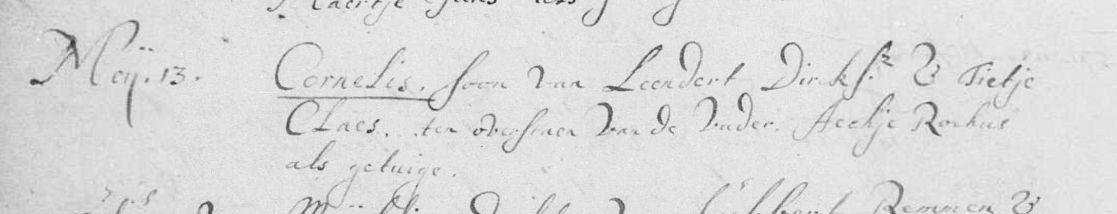 Meÿ. 13. Cornelis. soon van Leendert Dirksz & Tietje
Claes. ten overstaen van de vader. Aechje Rochus
als getuige.